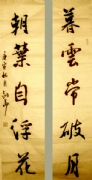 暮雲常破月
朝葉自浮花